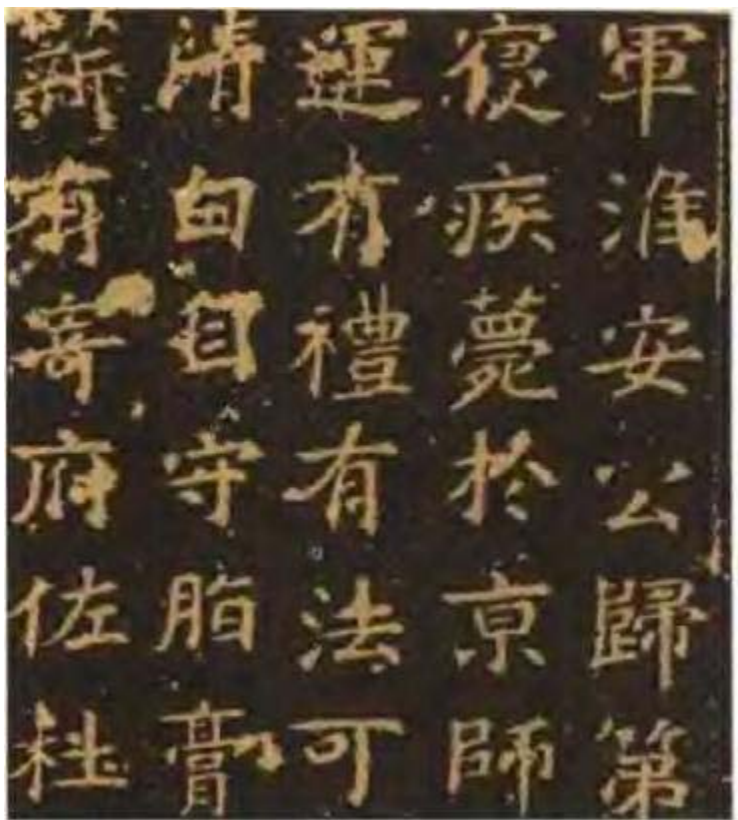 軍淮安公歸第
寢疾薨於京師
運有禮有法可
清白自守脂膏
新有奇府佐社